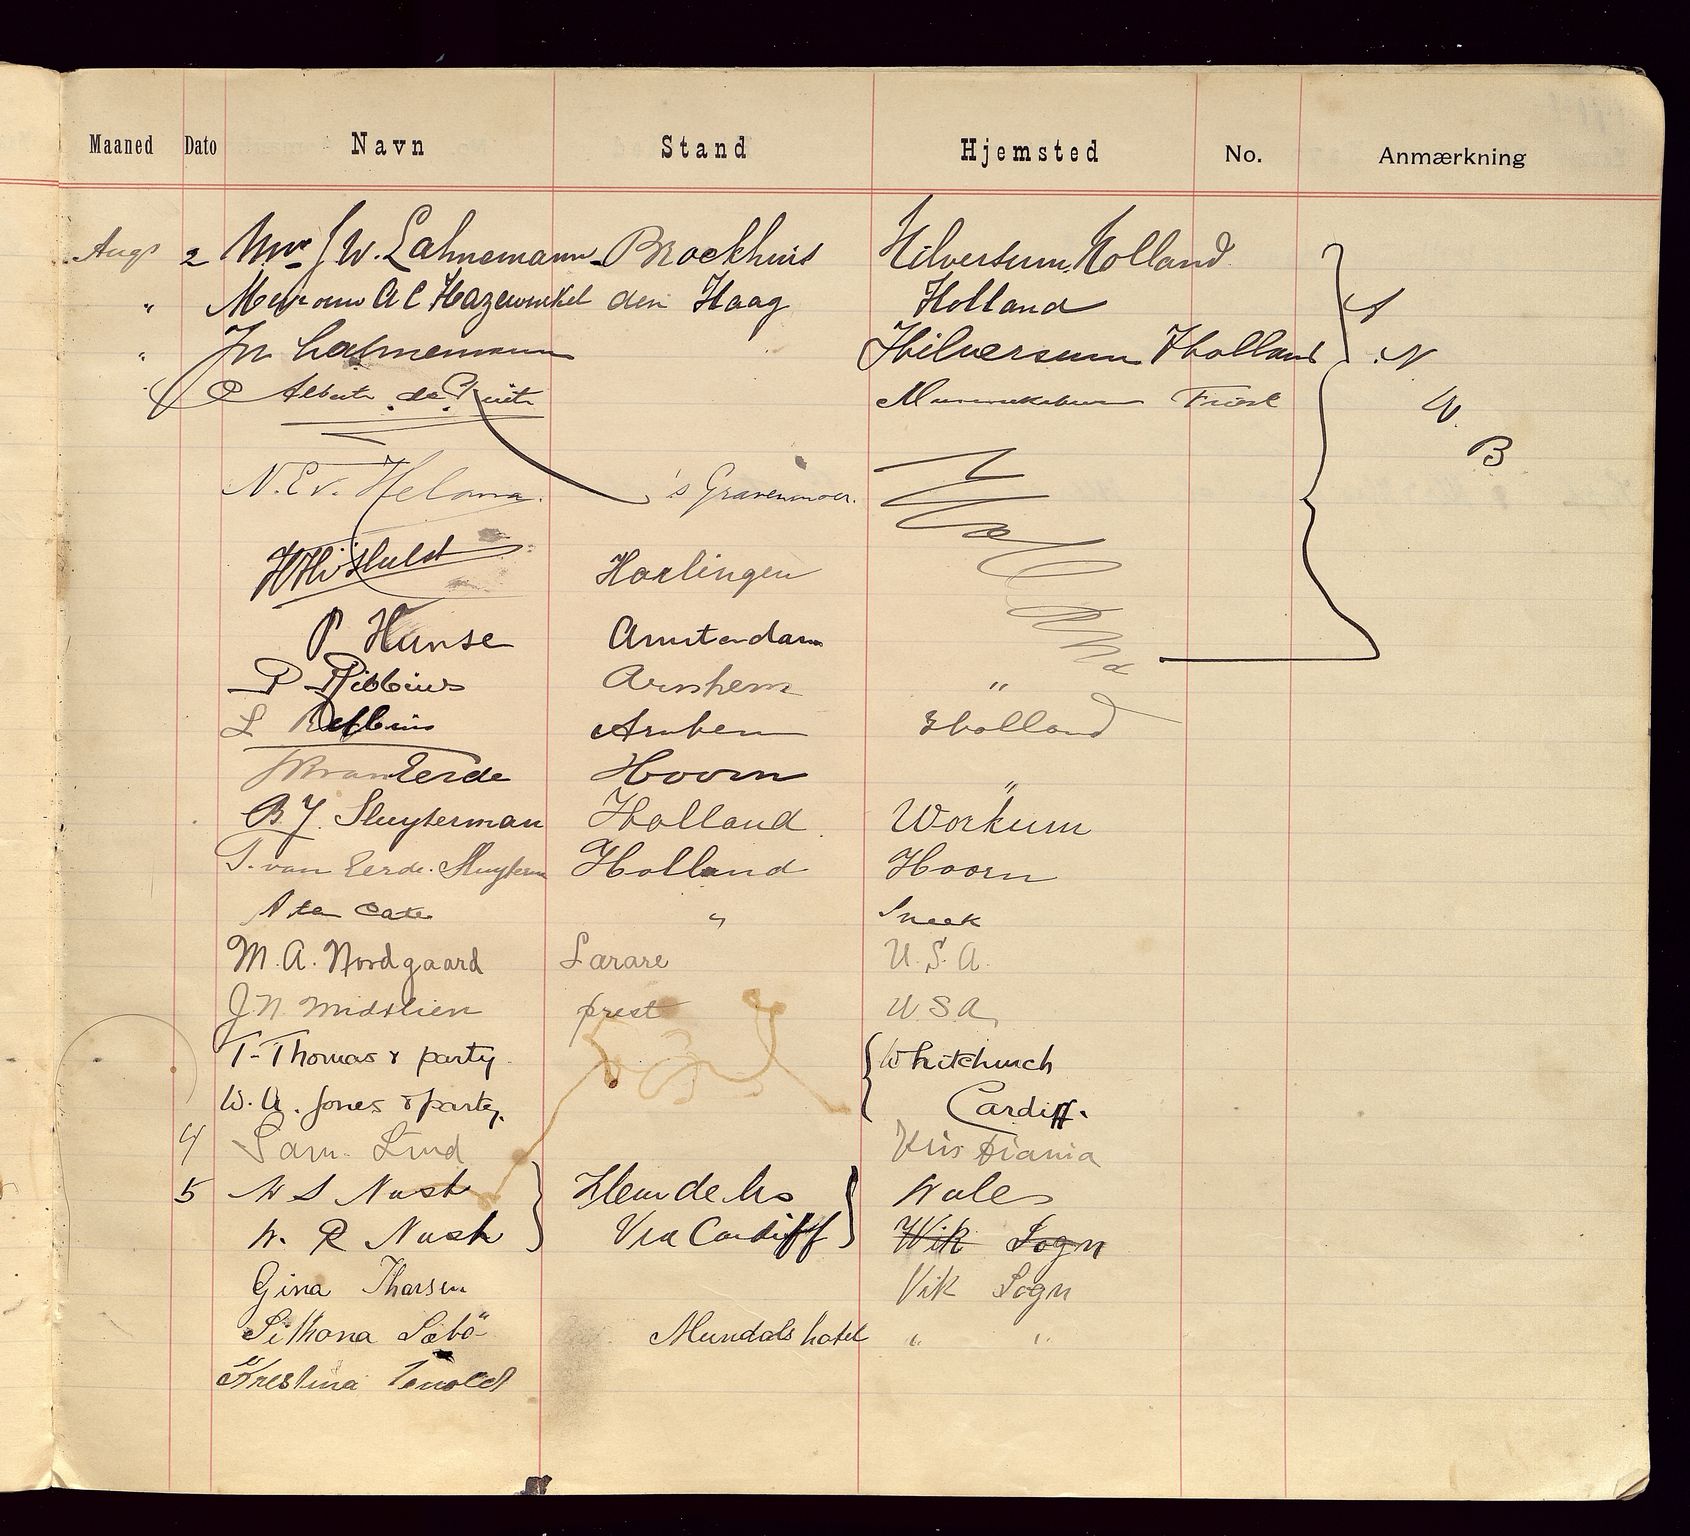 Maaned Dato Navn Stand Hjemsted No. Anmærkning
Augs 2 Mvr J W. Lahnemann-Broekhuis Hilversum, Holland
" Mevrouw A C Hazewinkel den Haag Holland A
" Jn Lahnemann Hilversum Holland N
" Alberts de Friesl W.
B
N. E v. Heloma. 's Gravenmoer.
Holland
Hulst Harlingen
P Hanse Amsterdam
P Ribbius Arnhem "
L Ribbius Arnhem Holland
van Eerde Hoorn "
B. J. Sluyterman Holland Workum
T. van Eerde. Sluyterm Holland Hoorn
A ten Cate " Sneek
M. A. Nordgaard Lærare U. S. A.
J. N. Midtlien prest U S A,
T. Thomas & party. Whitchurch
W. A. Jones & party. Cardiff.
4 Sam. Lind Kristiania
5 W S Nash Wales
W. R Nash Via Cardiff Wik Sogn
Gina Tharsen Vik Sogn
Sæbö Mundals hotel " "
Krestina